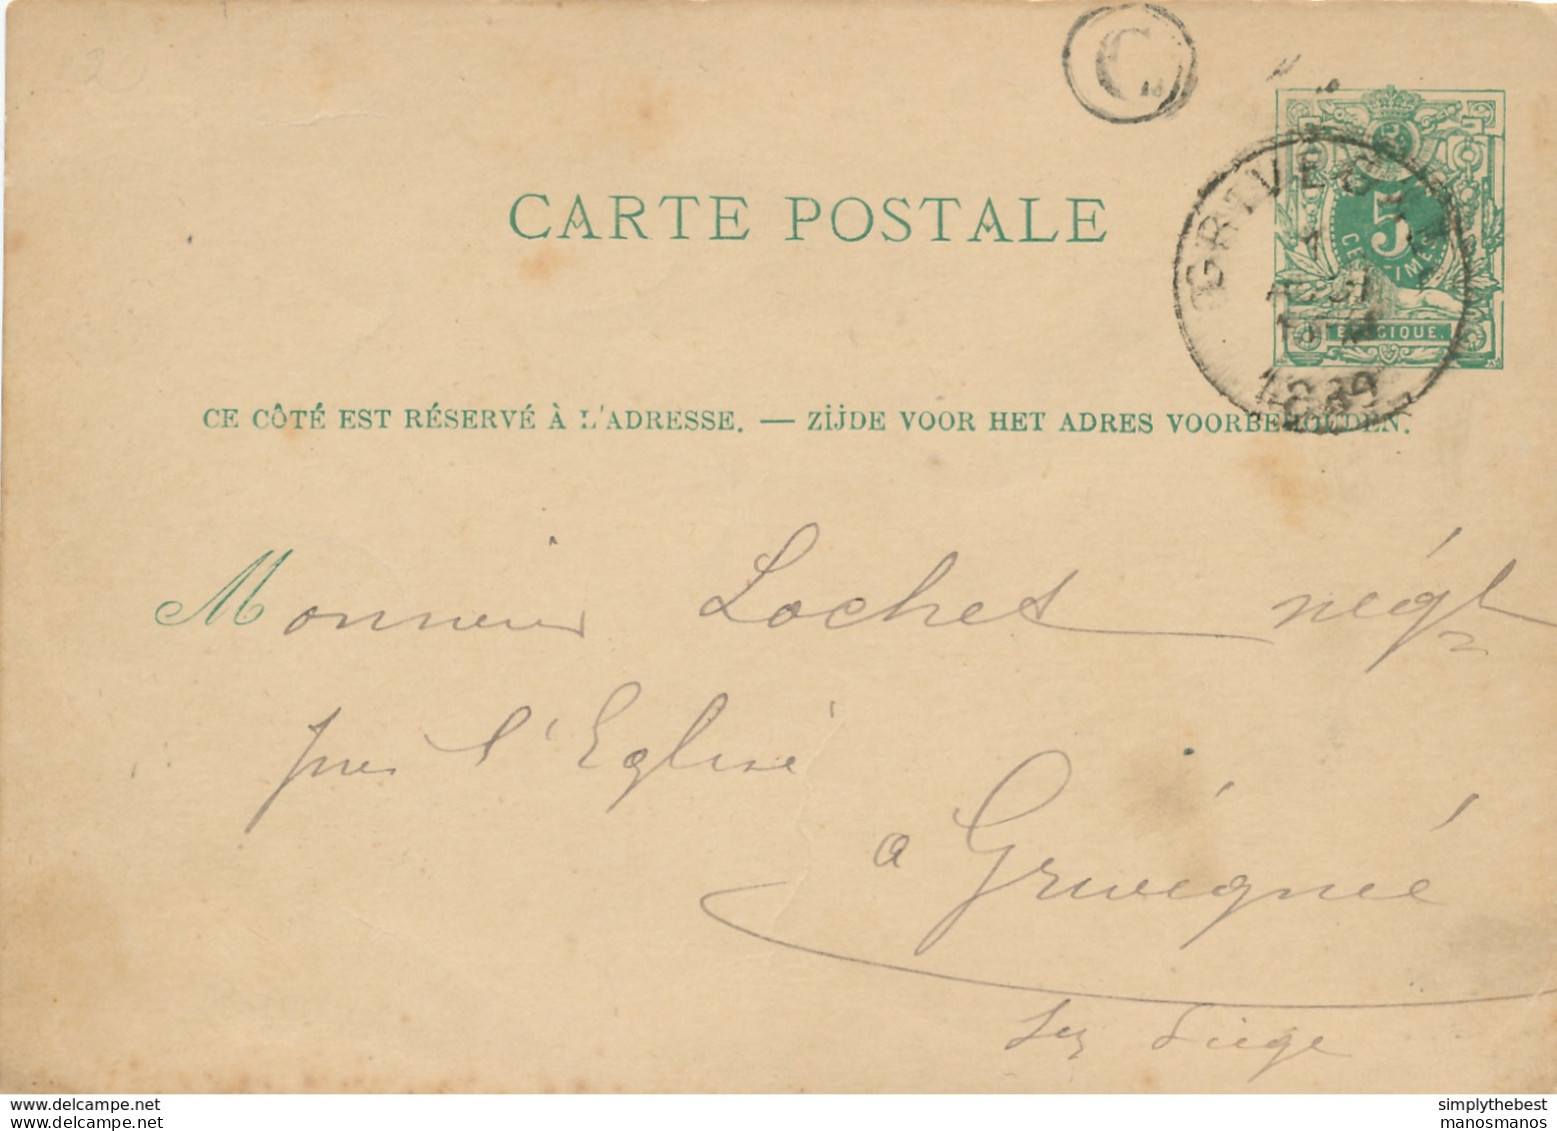 C
CARTE POSTALE
GRIVEGNÉE
5
CENTIMES
7
AOUT
1889
BELGIQUE.
CE CÔTÉ EST RÉSERVÉ À L'ADRESSE. — ZIJDE VOOR HET ADRES VOORBEHOUDEN.
Monsieur Lochet négt
près l'Eglise
a Grivegnée
lez Liége
manosmanos
manosmanos
simplythebest
manosmanos